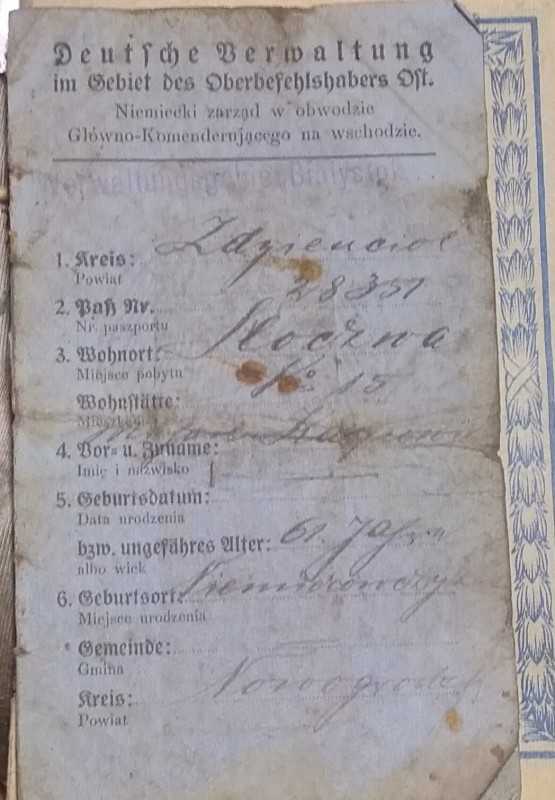 Deutsche Verwaltung
im Gebiet des Oberbefehlshabers Ost.
Niemiecki zarząd w obwodzie
Główno-Komenderującego na wschodzie.
Verwaltungsgebiet Bialystok
1. Kreis: Zdzienciol
Powiat
2. Paß Nr. 28351
Nr. paszportu
3. Wohnort:
Miejsce pobytu
Wohnstätte: No 15
4. Vor= u. Zuname:
Imię i nazwisko
5. Geburtsdatum:
Data urodzenia
bzw. ungefähres Alter: 61 Jahre
albo wiek
6. Geburtsort:
Miejsce urodzenia
Gemeinde:
Gmina
Kreis: Nowogrodek
Powiat